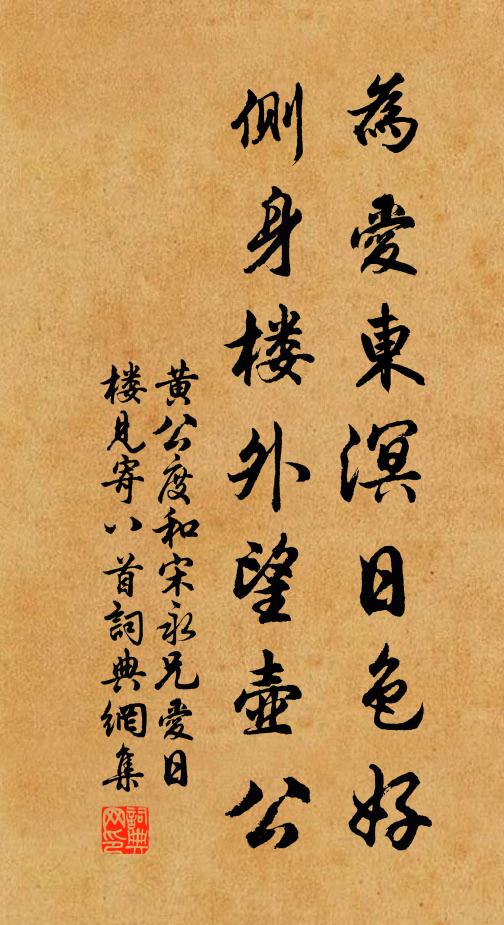 為愛東溟日色好
側身楼外望壺公
黄公度和宋永兄愛日
楼見寄八首詞典網集
詞典
网印